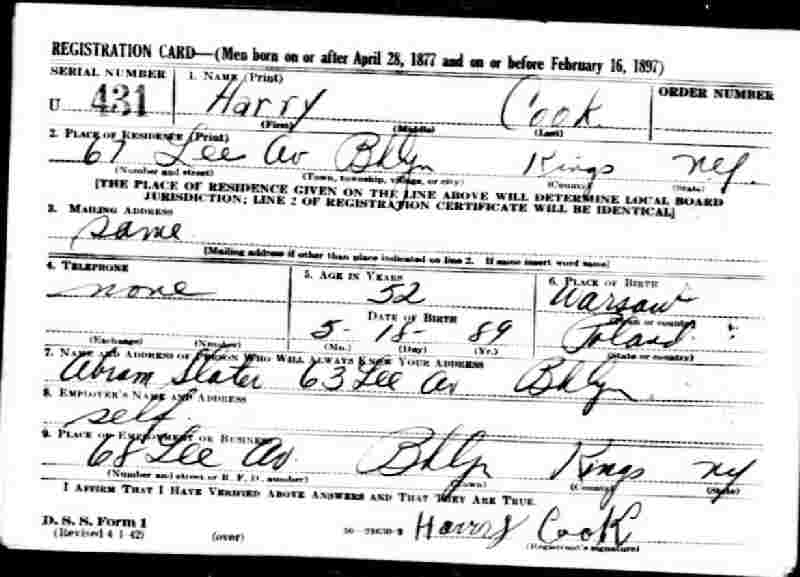 REGISTRATION CARD—(Men born on or after April 28, 1877 and on or before February 16, 1897)
SERIAL NUMBER 1. NAME (Print) ORDER NUMBER
U 431 Harry Cook
(First) (Middle) (Last)
2. PLACE OF RESIDENCE (Print)
67 Lee Av Bklyn Kings NY.
(Number and street) (Town, township, village, or city) (County) (State)
[THE PLACE OF RESIDENCE GIVEN ON THE LINE ABOVE WILL DETERMINE LOCAL BOARD
JURISDICTION; LINE 2 OF REGISTRATION CERTIFICATE WILL BE IDENTICAL]
3. MAILING ADDRESS
same
[Mailing address if other than place indicated on line 2. If same insert word same]
4. TELEPHONE 5. AGE IN YEARS 6. PLACE OF BIRTH
none 52 Warsaw
DATE OF BIRTH (Town or county)
5- 18- 89 Poland
(Exchange) (Number) (Mo.) (Day) (Yr.) (State or country)
7. NAME AND ADDRESS OF PERSON WHO WILL ALWAYS KNOW YOUR ADDRESS
Abram Slater 63 Lee Av Bklyn
8. EMPLOYER'S NAME AND ADDRESS
self
9. PLACE OF EMPLOYMENT OR BUSINESS
68 Lee Av. Bklyn Kings NY
(Number and street or R. F. D. number) (Town) (County) (State)
I AFFIRM THAT I HAVE VERIFIED ABOVE ANSWERS AND THAT THEY ARE TRUE.
D. S. S. Form 1
(Revised 4-1-42) (over) Harry Cook
(Registrant's signature)